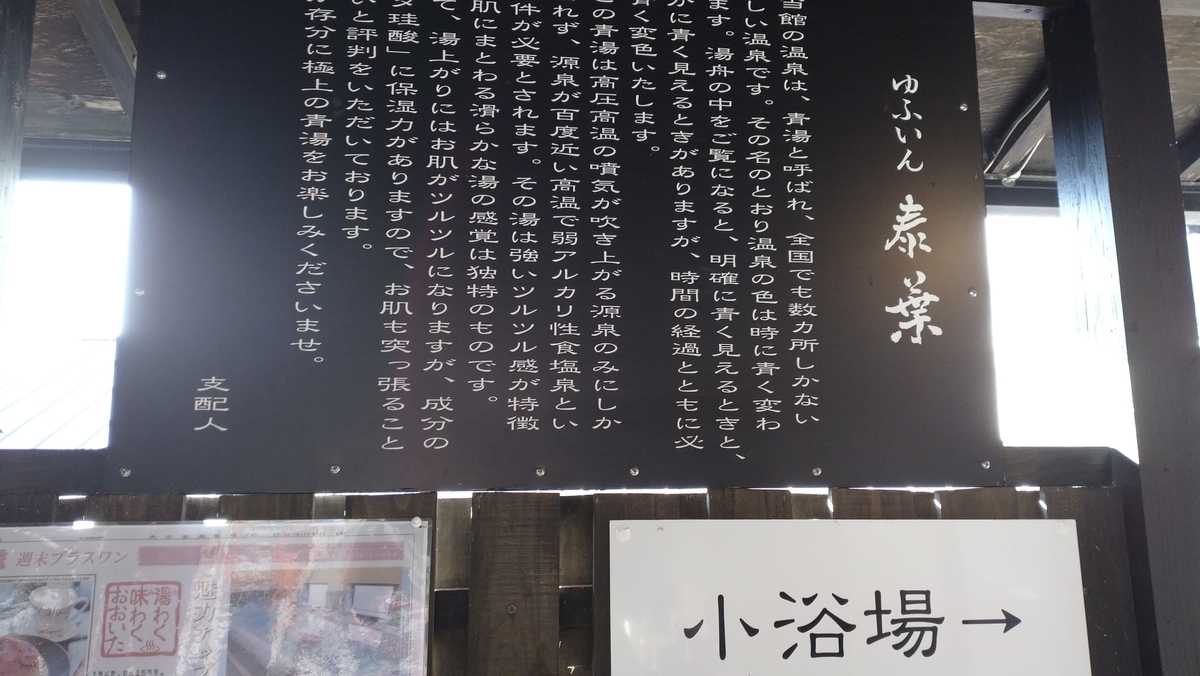 ゆふいん 泰葉
当館の温泉は、青湯と呼ばれ、全国でも数カ所しかない
しい温泉です。その名のとおり温泉の色は時に青く変わ
ます。湯舟の中をご覧になると、明確に青く見えるときと、
かに青く見えるときがありますが、時間の経過とともに必
青く変色いたします。
この青湯は高圧高温の噴気が吹き上がる源泉のみにしか
れず、源泉が百度近い高温で弱アルカリ性食塩泉とい
件が必要とされます。その湯は強いツルツル感が特徴
肌にまとわる滑らかな湯の感覚は独特のものです。
て、湯上がりにはお肌がツルツルになりますが、成分の
珪酸」に保湿力がありますので、お肌も突っ張ること
いと評判をいただいております。
存分に極上の青湯をお楽しみくださいませ。
支配人
週末プラスワン
湯わく
味わく
おおいた
小浴場→